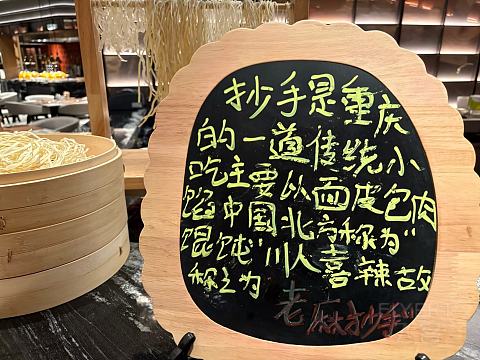 抄手是重庆
的一道传统小
吃主要以面皮包肉
馅中国北方称为"
馄饨"川人喜辣故
称之为
老麻抄手"